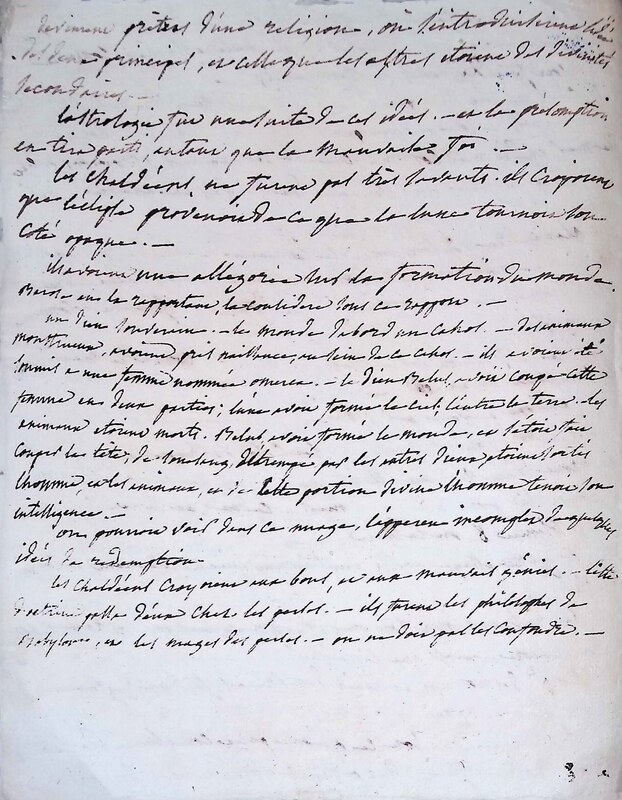 devinrent prêtres d'une religion, où l'entrodivisieme
principal, et celle que les astres etoient des divinités
secondaires. —
L'astrologie fut une suite de ces idées. — et la présomption
en tira parti, autant que la mauvaise foi. —
les Chaldéens, ne furent pas très savants. ils croyoient
que l'éclipse provenoit de ce que la lune tournoit son
côté opaque. —
ils avoient une allégorie sur la formation du monde.
Berose en la rapportant, la considère sous ce rapport. —
un dieu souverain. — le monde d'abord un cahos. — des animaux
monstrueux, avoient pris naissance, au sein de ce cahos. — ils avoient été
soumis a une femme nommée omerca. — le dieu Belus, avoit coupé cette
femme en deux parties; l'une avoit formé le ciel, l'autre la terre. les
animaux etoient morts. Belus, avoit formé le monde, et s'étoit fait
couper la tête; de son sang, détrempé par les autres dieux, etoient sortis
l'homme, et les animaux, et de cette portion divine l'homme tenoit son
intelligence. —
on pourroit voir dans ce nuage, l'apperçu incomplet de quelques
idées de redemption.
les Chaldéens croyoient aux bons, et aux mauvais génies. — cette
doctrine passa d'eux chez les perses. — ils furent les philosophes de
Babylone, et les mages des perses. — on ne doit pas les confondre. —